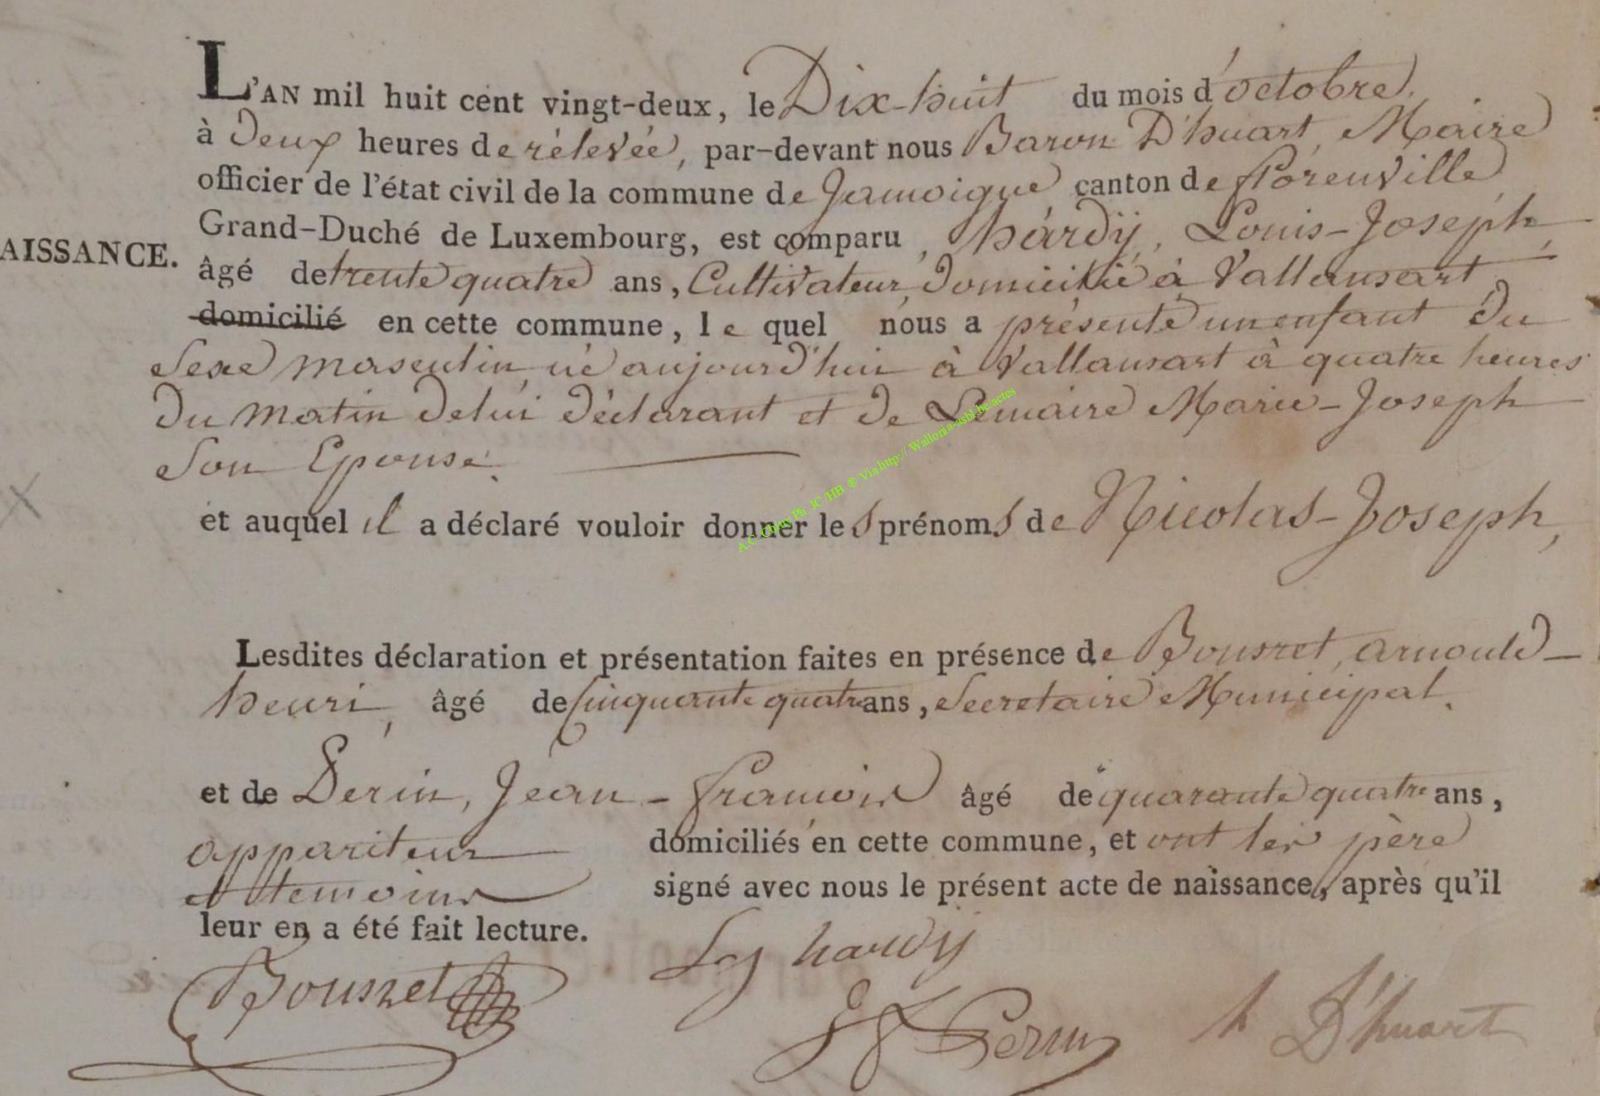 L'AN mil huit cent vingt-deux, le Dix-huit du mois d'octobre,
à Deux heures de rélevée, par-devant nous Baron D'huart, Maire
officier de l'état civil de la commune de Jamoigne canton de florenville
AISSANCE.
Grand-Duché de Luxembourg, est comparu, hardÿ, Louis-Joseph,
âgé de trente quatre ans, Cultivateur, Domicilié à Vallansart
domicilié en cette commune, le quel nous a présenté un enfant Du
Sexe masculin, né aujourd'hui à Vallansart à quatre heures
Du matin De lui déclarant et de Lemaire Marie-Joseph
Son Epouse.
et auquel il a déclaré vouloir donner les prénoms de Nicolas-Joseph,
Lesdites déclaration et présentation faites en présence de Bousret, arnould-
henri, âgé de Cinquante quatre ans, Secretaire Municipal.
et de Perin, Jean-francois âgé de quarante quatre ans,
appariteur domiciliés en cette commune, et ont les père
et temoins signé avec nous le présent acte de naissance, après qu'il
leur en a été fait lecture.
hardÿ
Bousret
Perin
h D'huart